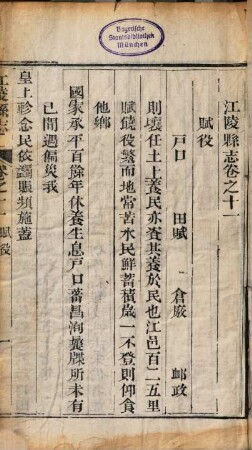 Bayerische
Staatsbibliothek
München
江陵縣志卷之十一
賦役
戶口 田賦 倉廒 郵政
則壤任土十養民亦資其養於民也江邑百二五里
賦饒役繁而地當苦水民鮮蓄積歲一不登則仰食
他鄉
國家承平百餘年休養生息戶口蕃昌洵冀牒所未有
已間遇偏災我
皇上軫念民依蠲賑頻施蓋
江陵縣志 卷之十一 賦役 一